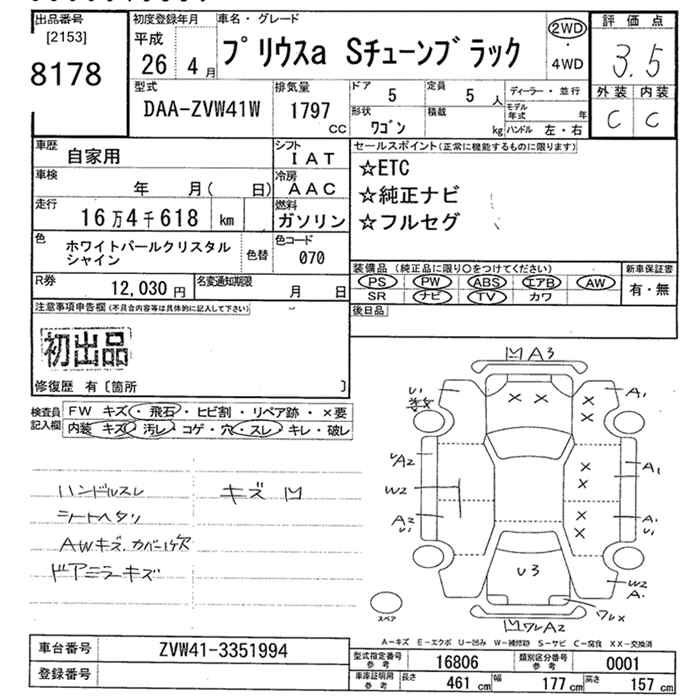 出品番号
[2153]
8178
初度登録年月
平成
26 4月
車名・グレード
プリウスa Sチューンブラック
2WD
・
4WD
評価点
3.5
外装 内装
C C
型式
DAA-ZVW41W
排気量
1797
CC
ドア
5
定員
5 人
形状
ワゴン
積載
kg
ディーラー・並行
モデル年式 年
ハンドル 左・右
車歴
自家用
シフト
IAT
車検
年 月( 日)
冷房
AAC
走行
16万4千618 km
燃料
ガソリン
色
ホワイトパールクリスタル
シャイン
色替
色コード
070
R券
12,030円
名変通知期限
月 日
セールスポイント(正常に機能するものに限ります)
☆ETC
☆純正ナビ
☆フルセグ
装備品 (純正品に限り○をつけてください)
PS PW ABS エアB AW
SR ナビ TV カワ
新車保証書
有・無
後日品
注意事項申告欄(不具合内容等は具体的に記入して下さい)
初出品
修復歴 有〔箇所 〕
検査員
記入欄
FW キズ・飛石・ヒビ割・リペア跡・×要
内装 キズ・汚レ・コゲ・穴・スレ・キレ・破レ
ハンドルスレ
シートヘタリ
AWキズ、カバー1ケ欠
ドアミラーキズ
キズ凹
凹A3
U1
A1
UA2
W2
A2
U1
A1
A1
U1
W2
A1
U3
ワレX
凹ワレA2
スペア
A-キズ E-エクボ U-凹み W-補修跡 S-サビ C-腐食 XX-交換済
車台番号
ZVW41-3351994
登録番号
型式指定番号
参考
16806
類別区分番号
参考
0001
車庫証明用
参考
長さ 461 cm
幅 177 cm
高さ 157 cm